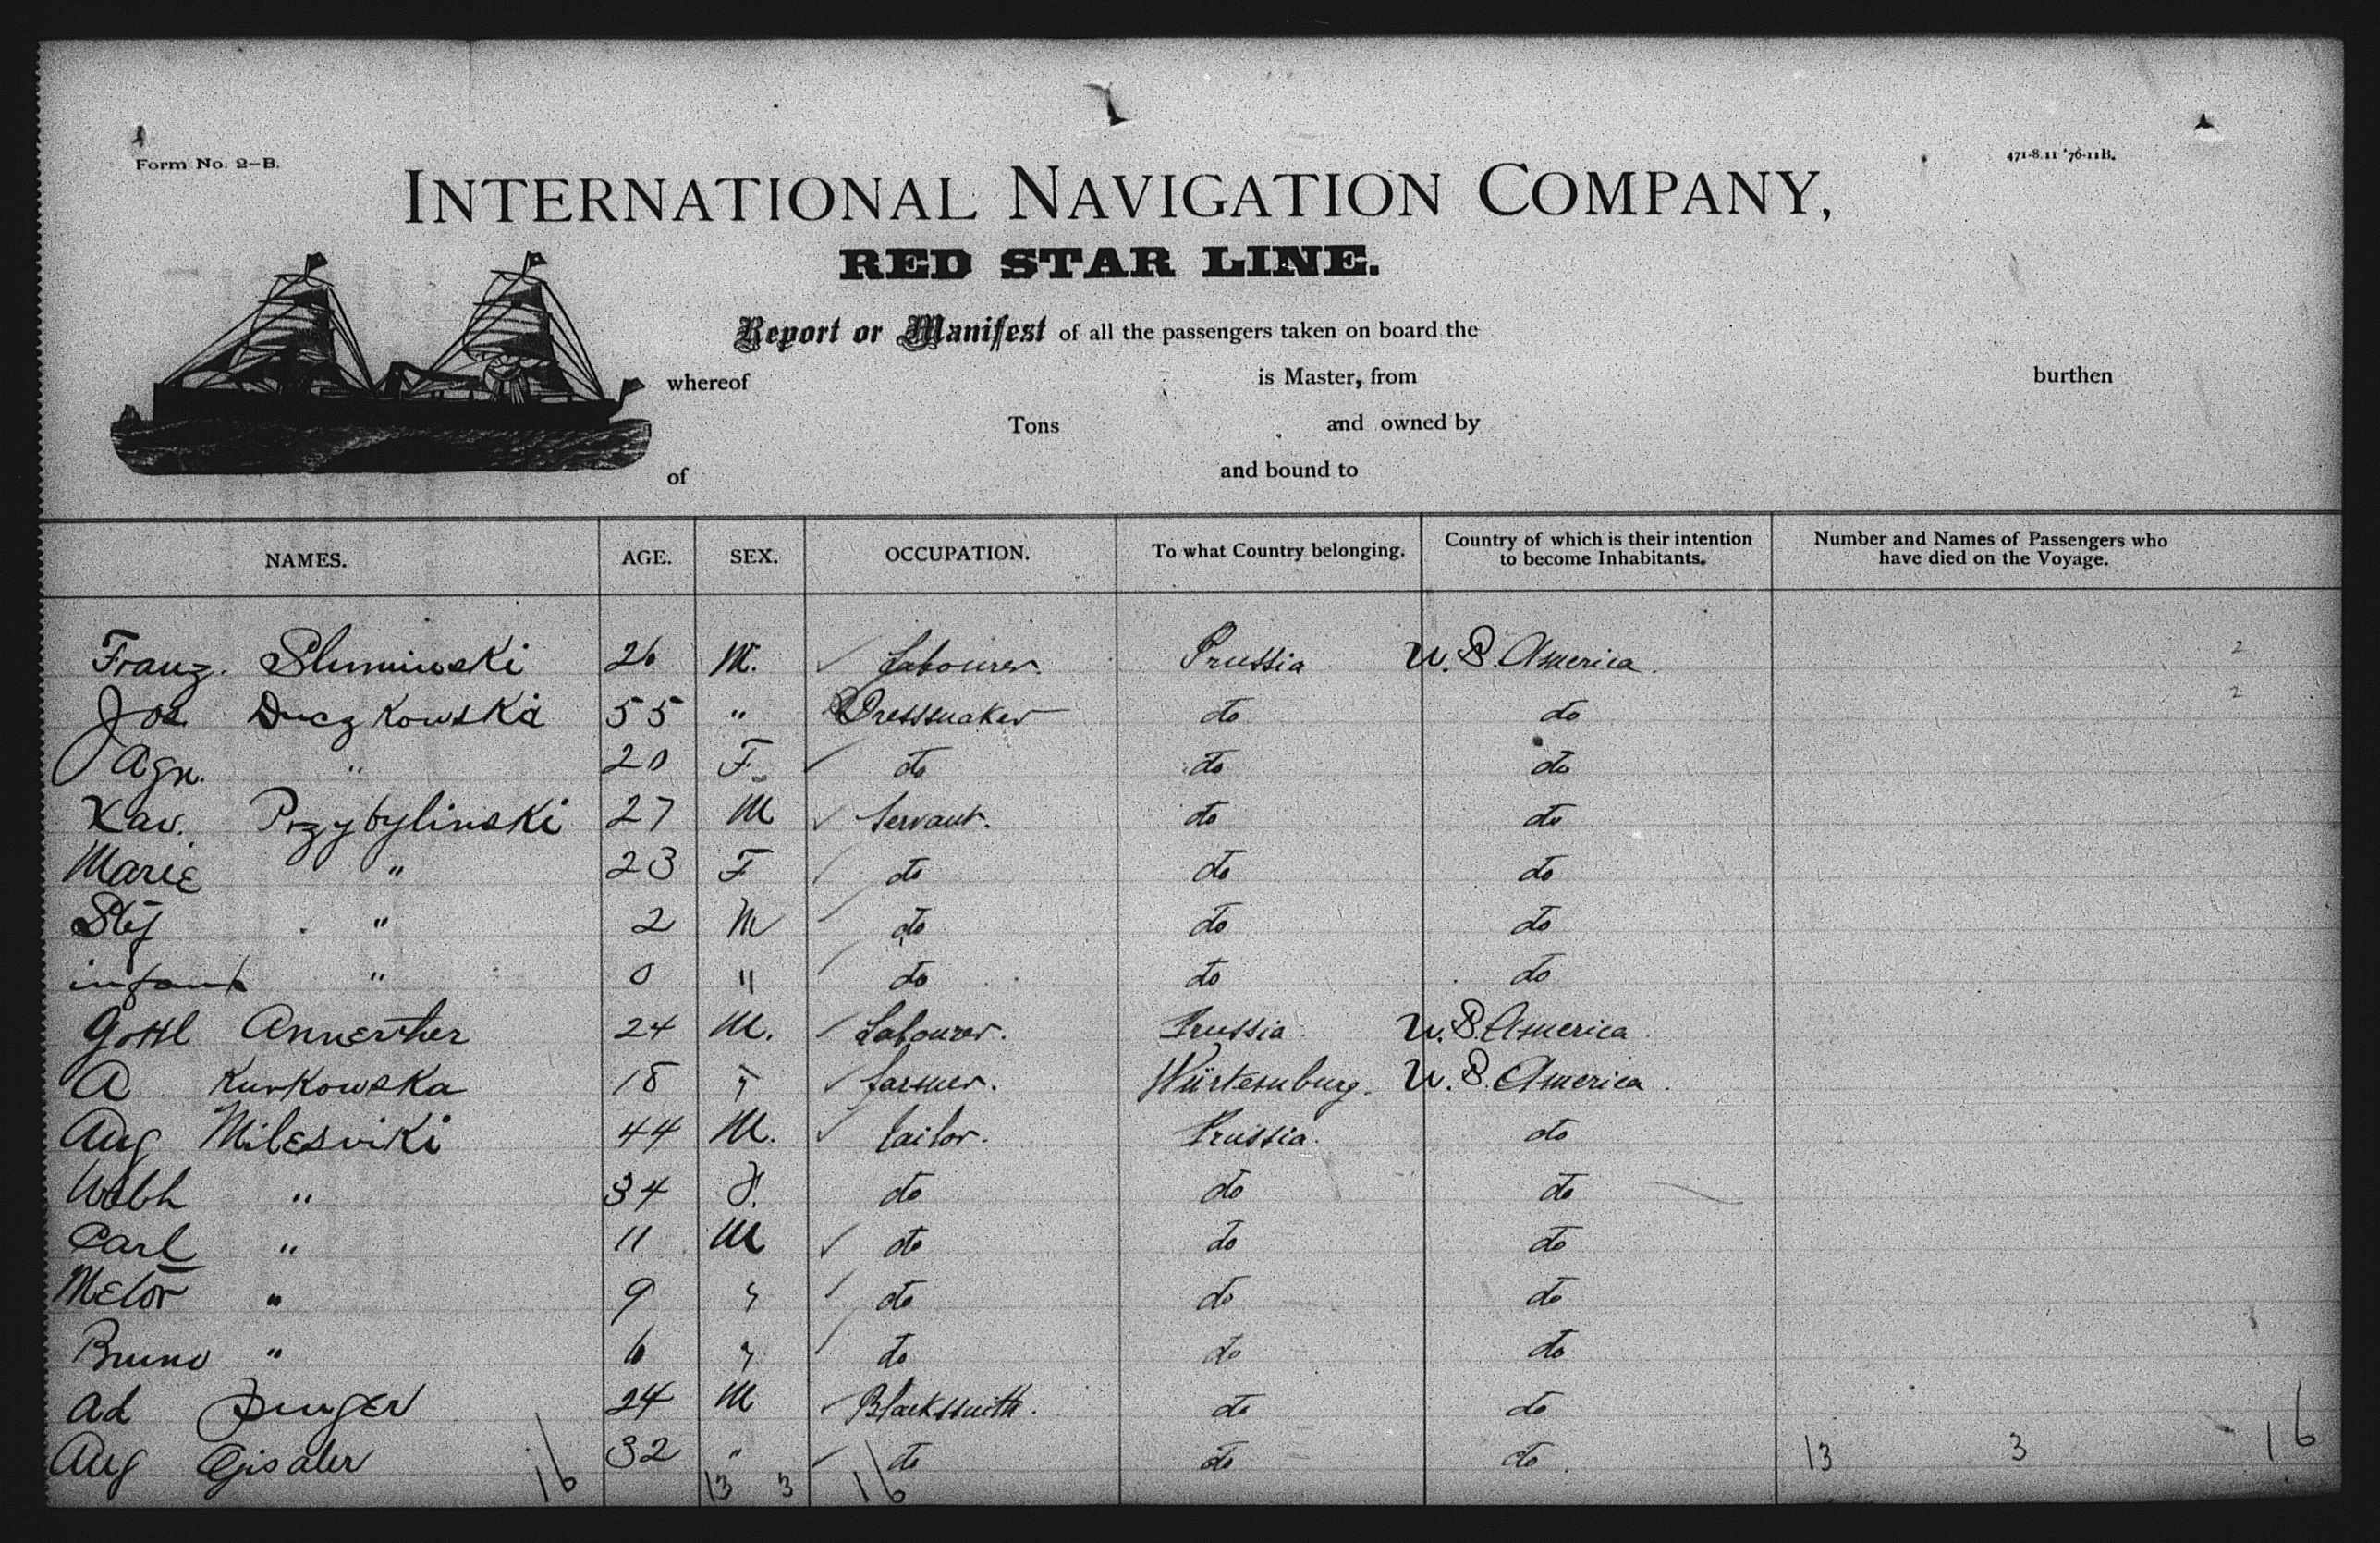 Form No. 2-B.
471-8.11 '76-11B.
INTERNATIONAL NAVIGATION COMPANY,
RED STAR LINE.
Report or Manifest of all the passengers taken on board the
whereof is Master, from burthen
Tons and owned by
of and bound to
NAMES. AGE. SEX. OCCUPATION. To what Country belonging. Country of which is their intention to become Inhabitants. Number and Names of Passengers who have died on the Voyage.
Franz. 26 M. Labourer. Prussia U.S. America. 2
Jos Duczkowska 55 " Dressmaker do do 2
Agn. " 20 F. do do do
Xav. Przybylinski 27 M Servant. do do
Marie " 23 F do do do
Stef " 2 M do do do
infant " 0 " do do do
Gottl Annerther 24 M. Labourer. Prussia U.S. America
A Kurkowska 18 F farmer. Würtemburg. U.S. America.
Aug Milesviki 44 M. tailor. Prussia. do
" 34 F. do do do
Carl " 11 M do do do
" 9 " do do do
Bruno " 6 " do do do
Ad 24 M Blacksmith. do do
Aug Gisaler 32 " do do do. 13 3 16
16 13 3 16